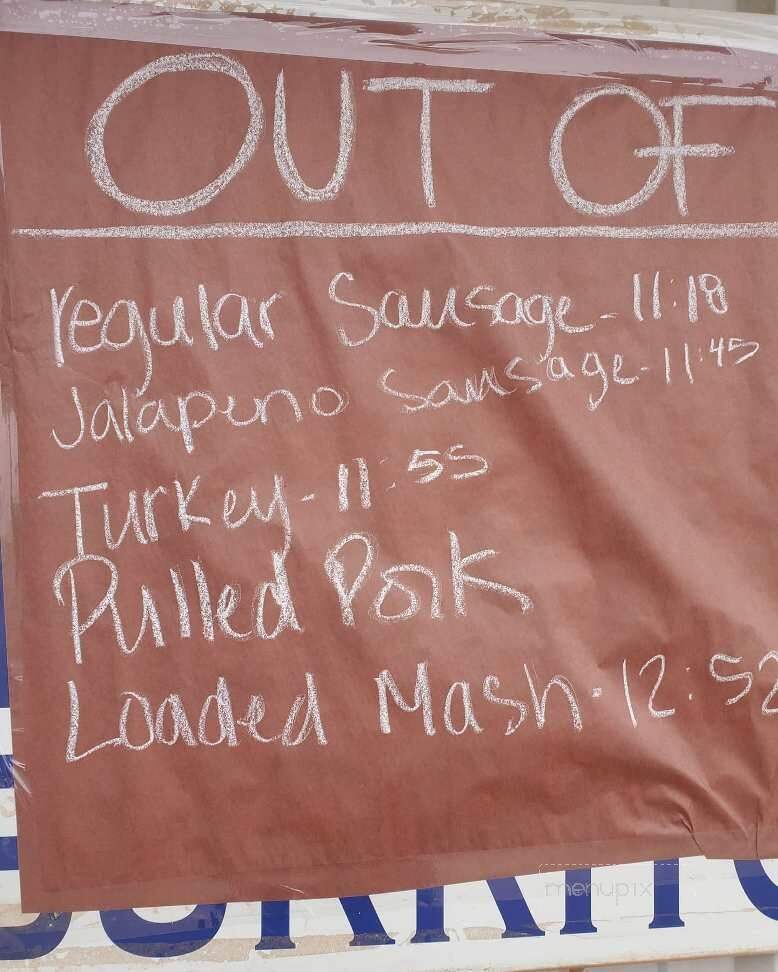 OUT OF
regular Sausage - 11:18
Jalapeno Sausage - 11:45
Turkey - 11:55
Pulled Pork
Loaded Mash - 12:52
menupix